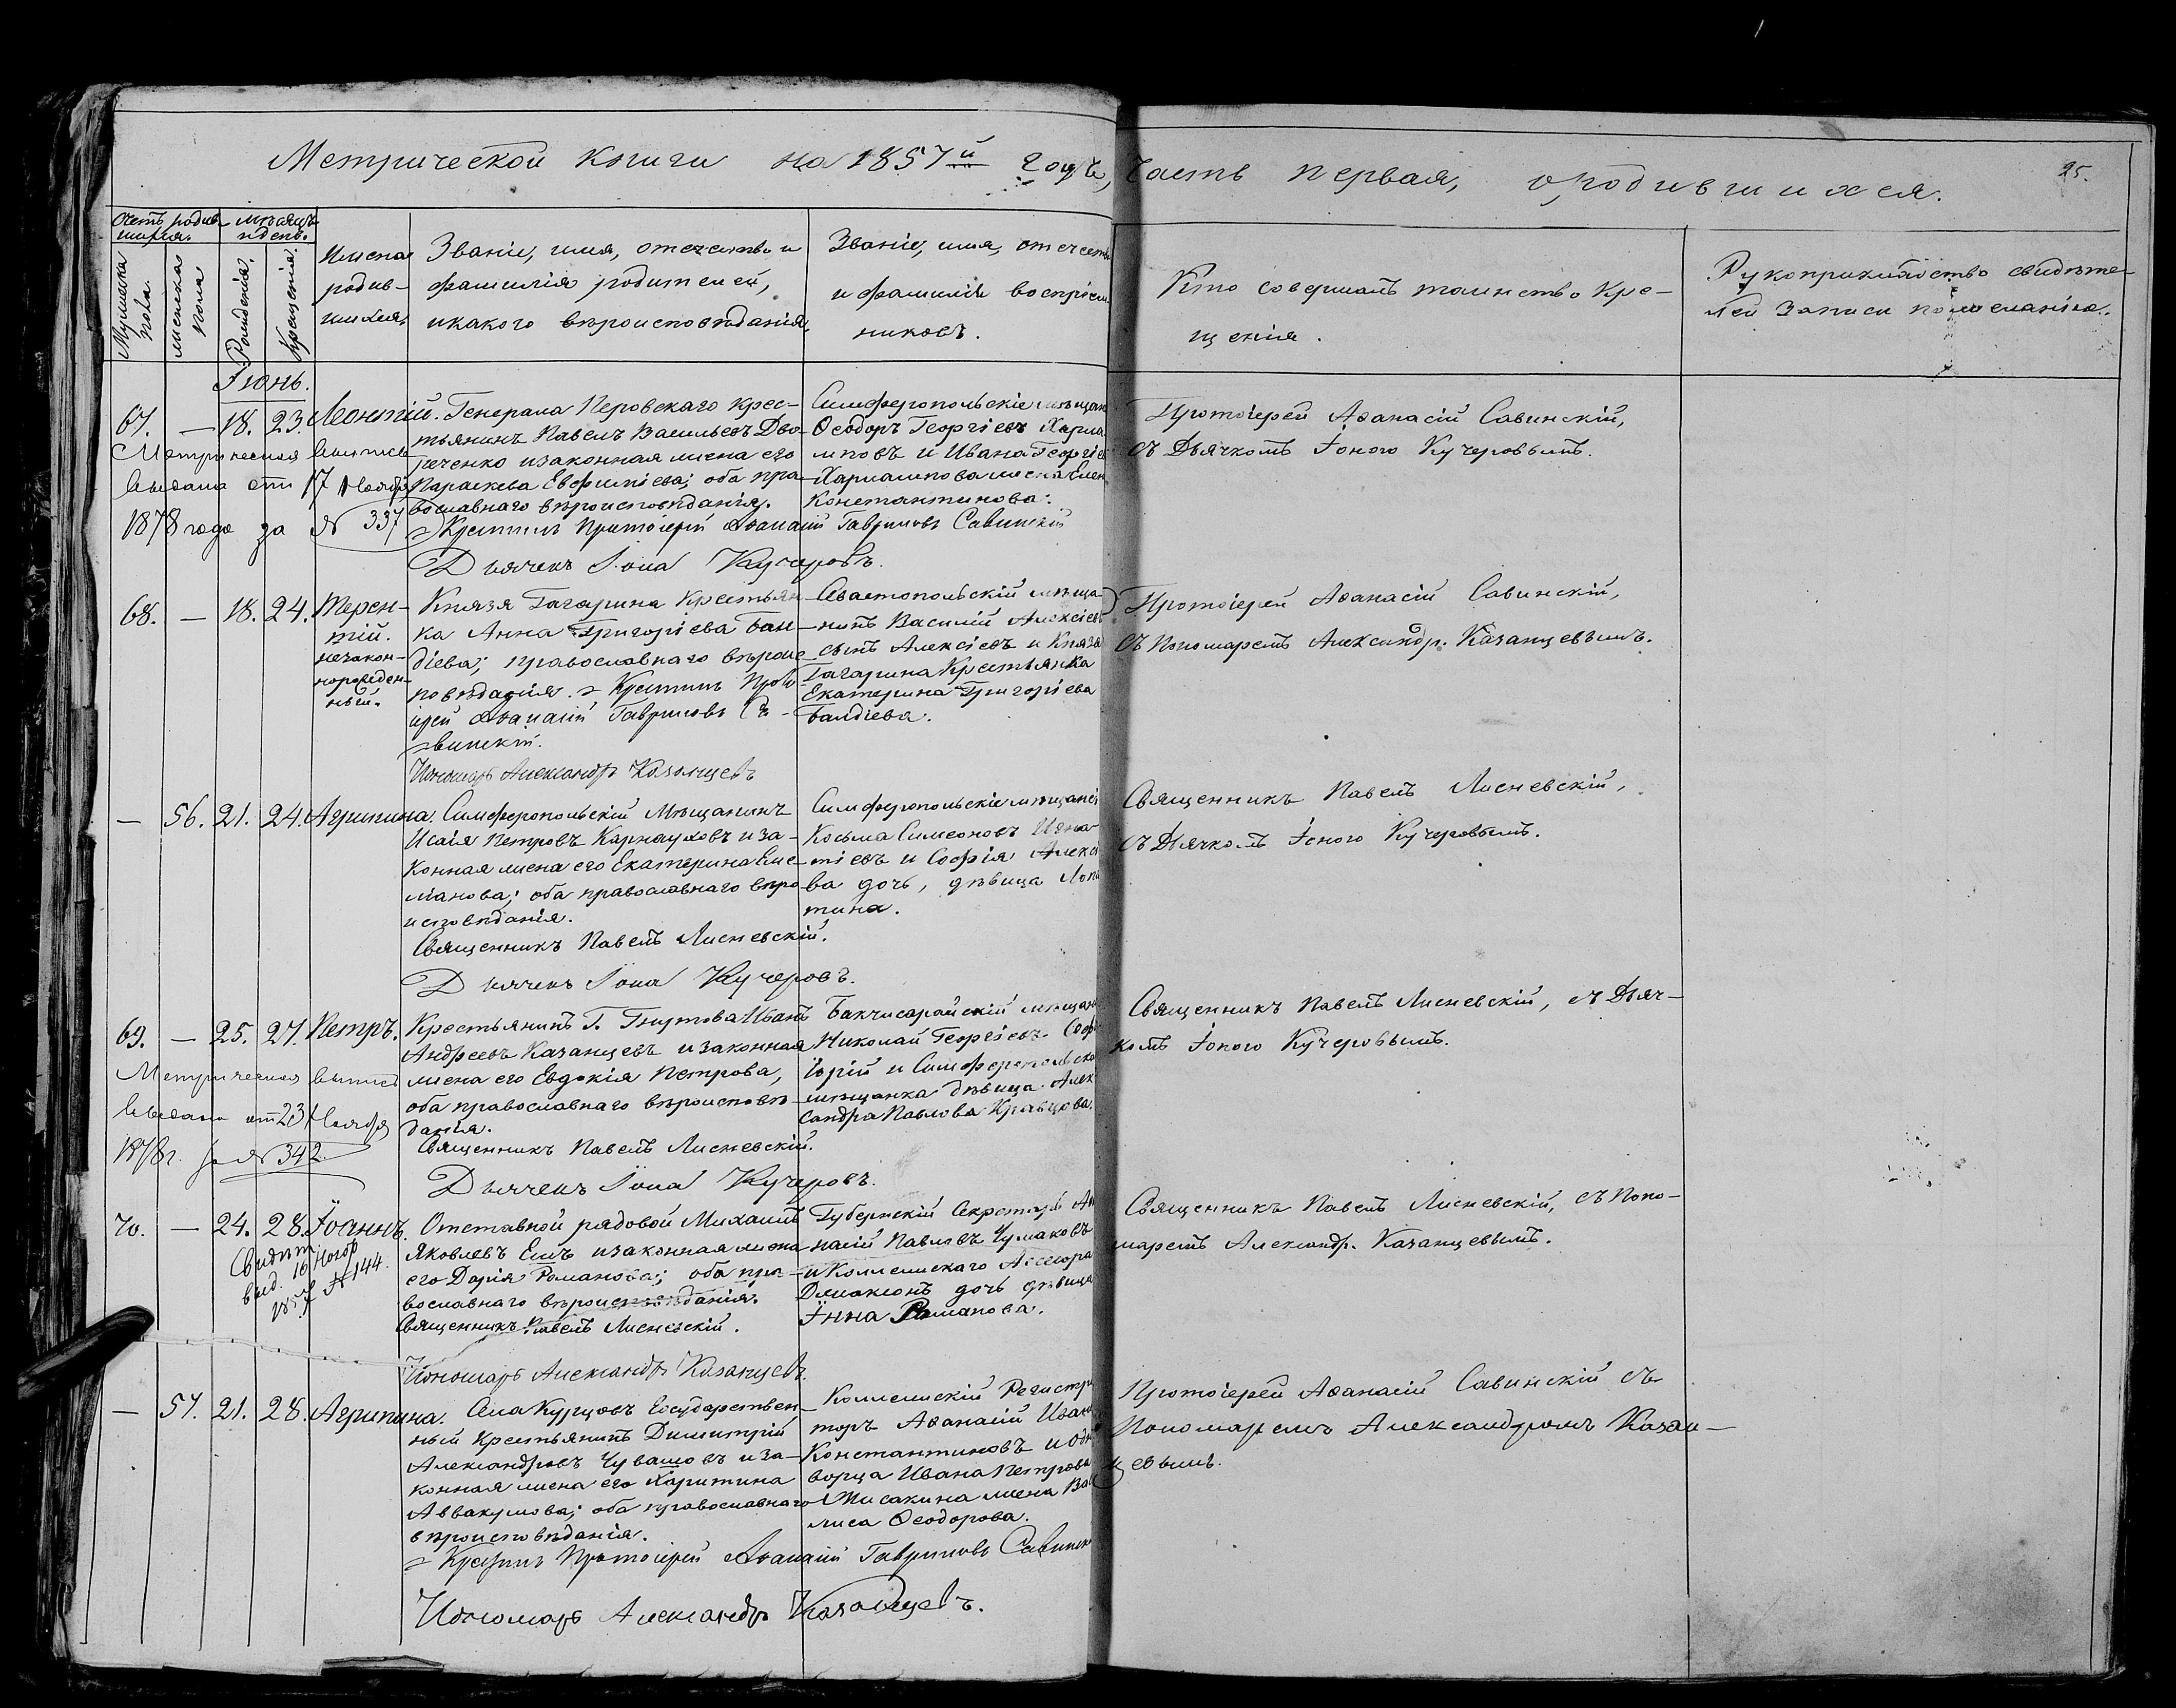 Метрической книги на 1857й годъ, часть первая, о родившихся.
25.
Счетъ родив-
шихся.
Мѣсяцъ
и день.
Мужеска
пола.
женска
пола
Рожденія.
Крещенія.
Имена
родив-
шихся.
Званіе, имя, отечество и
фамилія родителей,
и какого вѣроисповѣданія.
Званіе, имя, отечест
и фамилія воспріем
никовъ.
Кто совершалъ таинство Кре-
щенія.
Рукоприкладство свидѣте-
лей записи по желанію.
Іюнь.
67. — 18. 23. Леонтій.
Метрическая выпись
выдана отъ 17 Ноября
1878 года за № 337
Генерала Перовскаго крес-
тьянинъ Павелъ Васильевъ Дво-
реченко и законная жена его
Параскева Евфиміева; оба пра-
вославнаго вѣроисповѣданія.
Симферопольскіе мѣщан
Ѳеодоръ Георгіевъ Харла
мповъ и Ивана Георгіев
Харлампова жена Елен
Константинова.
Крестилъ Протоіерей Аѳанасій Гавриловъ Савинскій
Дьячекъ Іона Кучеровъ.
Протоіерей Аѳанасій Савинскій,
съ Дьячкомъ Іоною Кучеровымъ.
68. — 18. 24. Терен-
тій.
незакон-
норожден-
ный.
Князя Гагарина Крестьян
ка Анна Григоріева Бал-
діева; православнаго вѣроис
повѣданія. Крестилъ Прото
іерей Аѳанасій Гавриловъ Са-
винскій.
Пономарь Александръ Казанцевъ
Севастопольскій мѣща
нинъ Василій Алексіевъ
сынъ Алексіевъ и Князя
Гагарина Крестьянка
Екатерина Григоріева
Балдіева.
Протоіерей Аѳанасій Савинскій,
съ Пономаремъ Александр. Казанцевымъ.
— 56. 21. 24. Агрипина.
Симферопольскій Мѣщанинъ
Исаія Петровъ Карнауховъ и за-
конная жена его Екатерина Еме-
лианова; оба православнаго вѣро
исповѣданія.
Священникъ Павелъ Лисневскій.
Дьячекъ Іона Кучеровъ.
Симферопольскіе мѣщане
Косьма Симеоновъ Игна-
тіевъ и Софія Алексі
ва дочь, дѣвица Лопа
тина.
Священникъ Павелъ Лисневскій,
съ Дьячкомъ Іоною Кучеровымъ.
69. — 25. 27. Петръ.
Метрическая выпись
выдана отъ 23 Ноября
1878 г. за № 342
Крестьянинъ Г. Гнутова Иванъ
Андреевъ Казанцевъ и законная
жена его Евдокія Петрова,
оба православнаго вѣроисповѣ-
данія.
Священникъ Павелъ Лисневскій.
Дьячекъ Іона Кучеровъ.
Бакчисарайскій мѣщан
Николай Георгіевъ
и Симферопольска
мѣщанка дѣвица Алек
сандра Павлова Кравцова.
Священникъ Павелъ Лисневскій, съ Дьяч-
комъ Іоною Кучеровымъ.
70. — 24. 28. Іоаннъ.
Свидѣт.
выд. 16
185 № 144.
Отставной рядовой Михаилъ
Яковлевъ и законная жена
его Дарія Романова; оба пра-
вославнаго вѣроисповѣданія.
Священникъ Павелъ Лисневскій.
Пономарь Александръ Казанцевъ.
Губернскій Секретарь
Павловъ Чумаковъ
и Коллежскаго Ассесора
дочь дѣвица
Анна Романова.
Священникъ Павелъ Лисневскій, съ Поно-
маремъ Александр. Казанцевымъ.
— 57. 21. 28. Агрипина.
Села Курцовъ Государствен-
ный Крестьянинъ Димитрій
Александровъ Чувашовъ и за-
конная жена его Харитина
Аввакумова; оба православнаго
вѣроисповѣданія.
Коллежскій Регистра
торъ Аѳанасій Иван
Константиновъ и Одно
ворца Ивана Петрова
жена Ва
лиса Ѳеодорова.
Крестилъ Протоіерей Аѳанасій Гавриловъ Савинск
Пономарь Александръ Казанцевъ.
Протоіерей Аѳанасій Савинскій съ
Пономаремъ Александромъ Казан-
цевымъ.